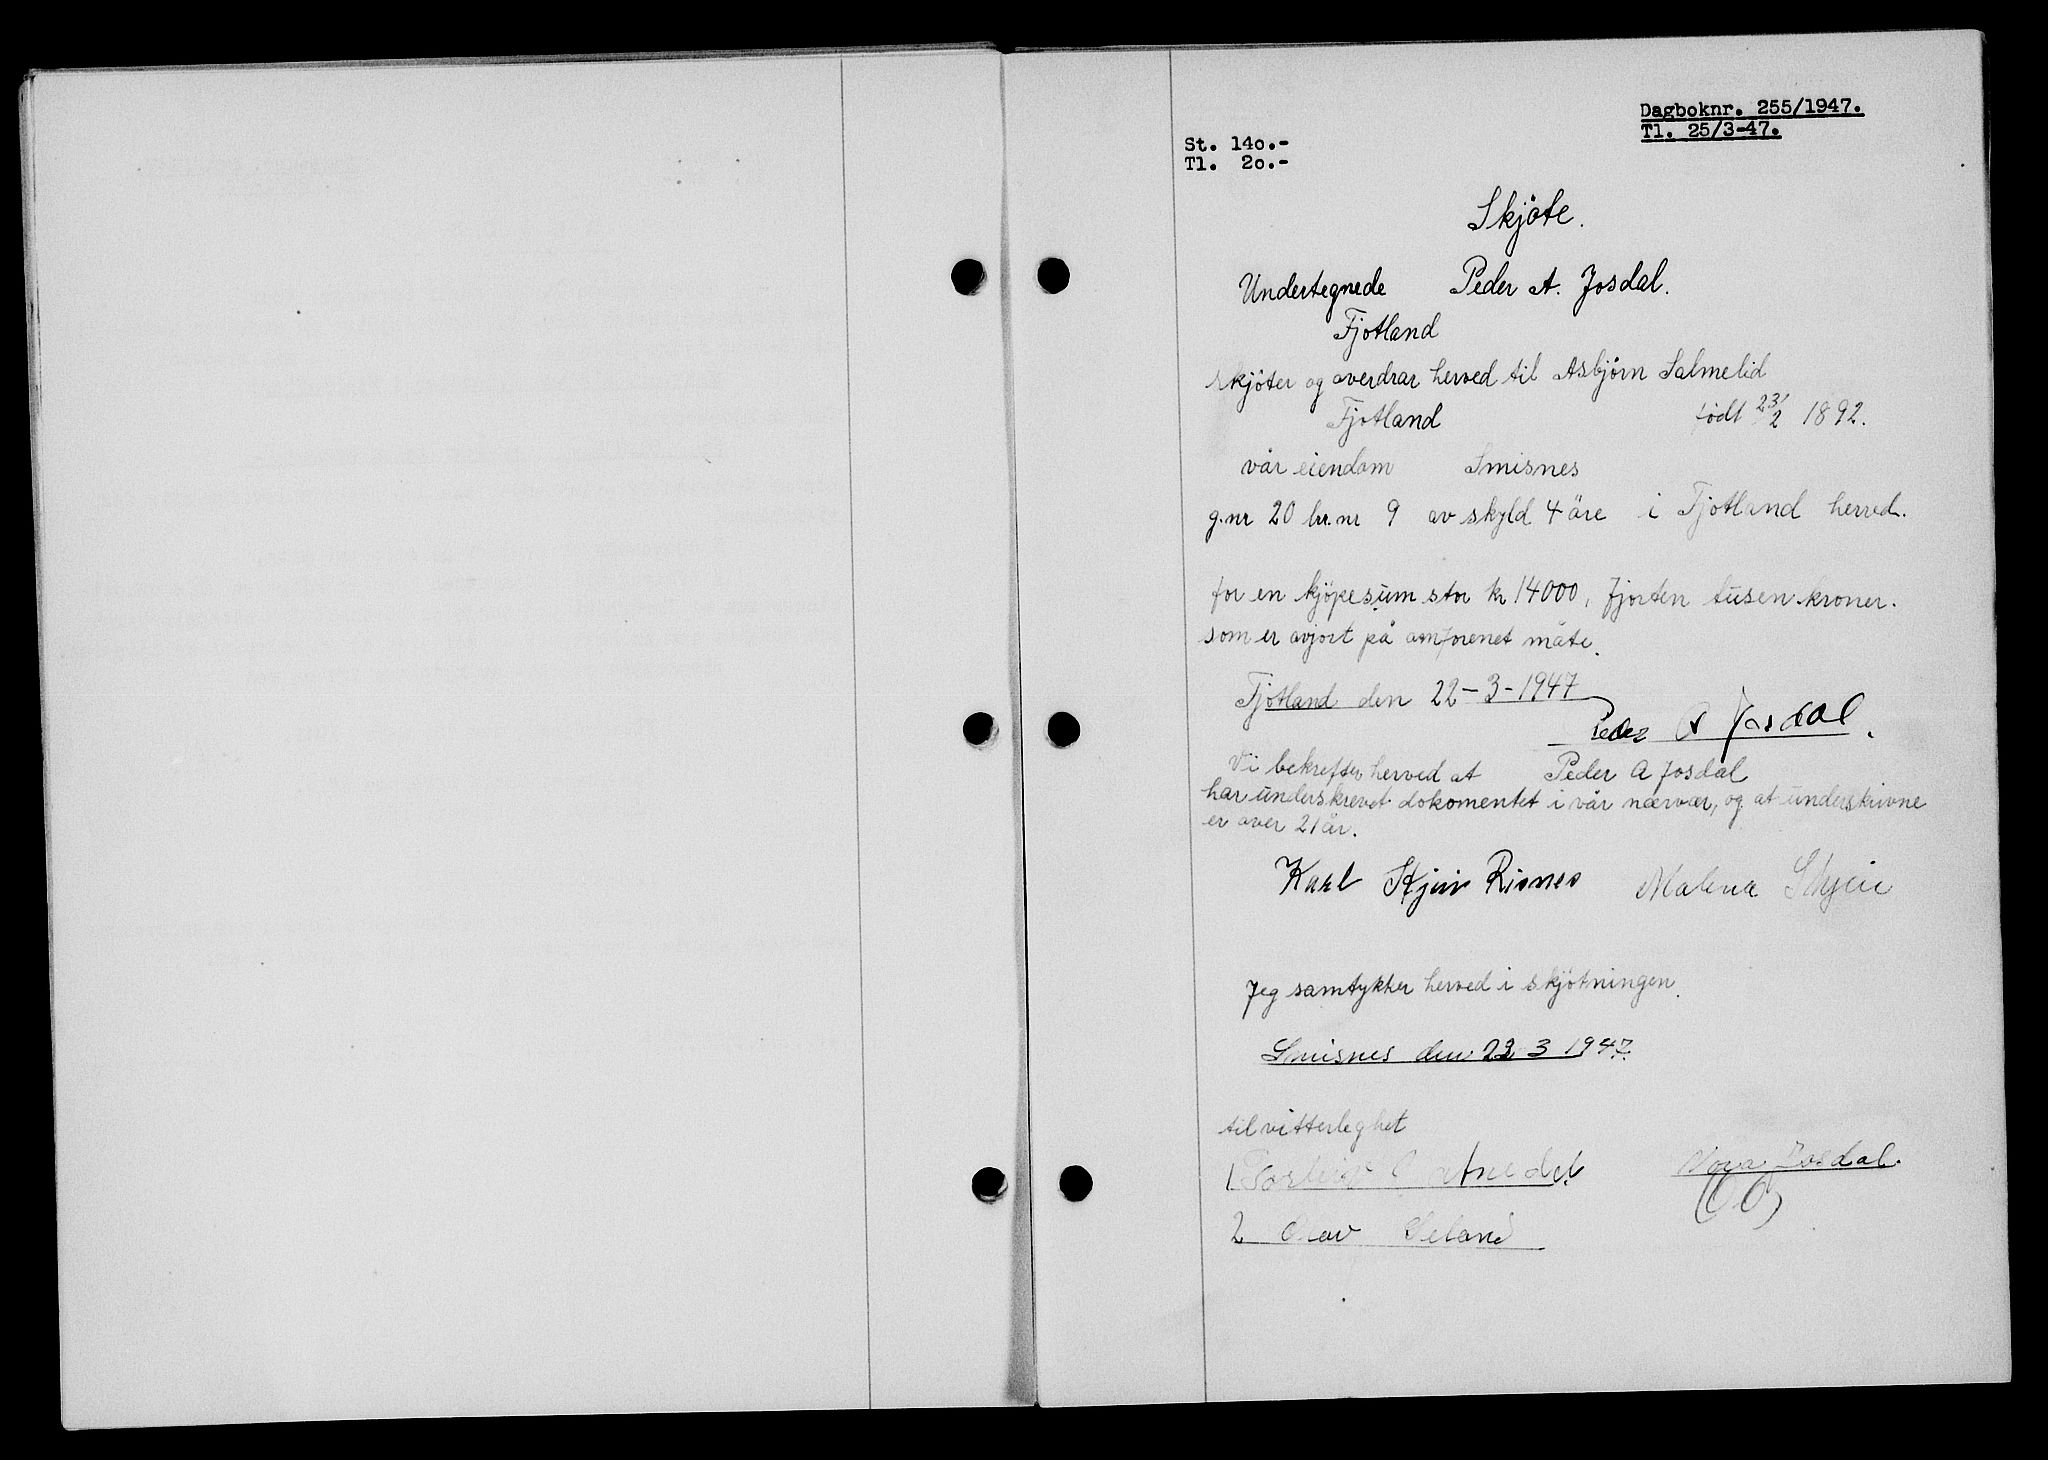 Dagboknr. 255/1947.
Tl. 25/3-47.
St. 14o.-
Tl. 2o.-
Skjöte.
Undertegnede Peder A. Josdal.
Fjotland
skjöter og overdrar herved til Asbjörn Salmelid
Fjotland födt 23/2 1892.
vår eiendom Smisnes
g.nr 20 br.nr 9 av skyld 4 öre i Fjotland herred.
for en kjöpesum stor kr 14000, fjorten tusen kroner.
som er avjort på omforenet måte.
Fjotland den 22-3-1947
Peder A Josdal.
Vi bekrefter herved at Peder A Josdal
har underskrevet dokomentet i vår nærvær, og at underskrivne
er over 21 år.
Karl Skjeie Risnes Malena Skjeie
Jeg samtykker herved i skjötningen.
Smisnes den 22 3 1947.
til vitterleghet
1 Josdal.
2 Olav Seland